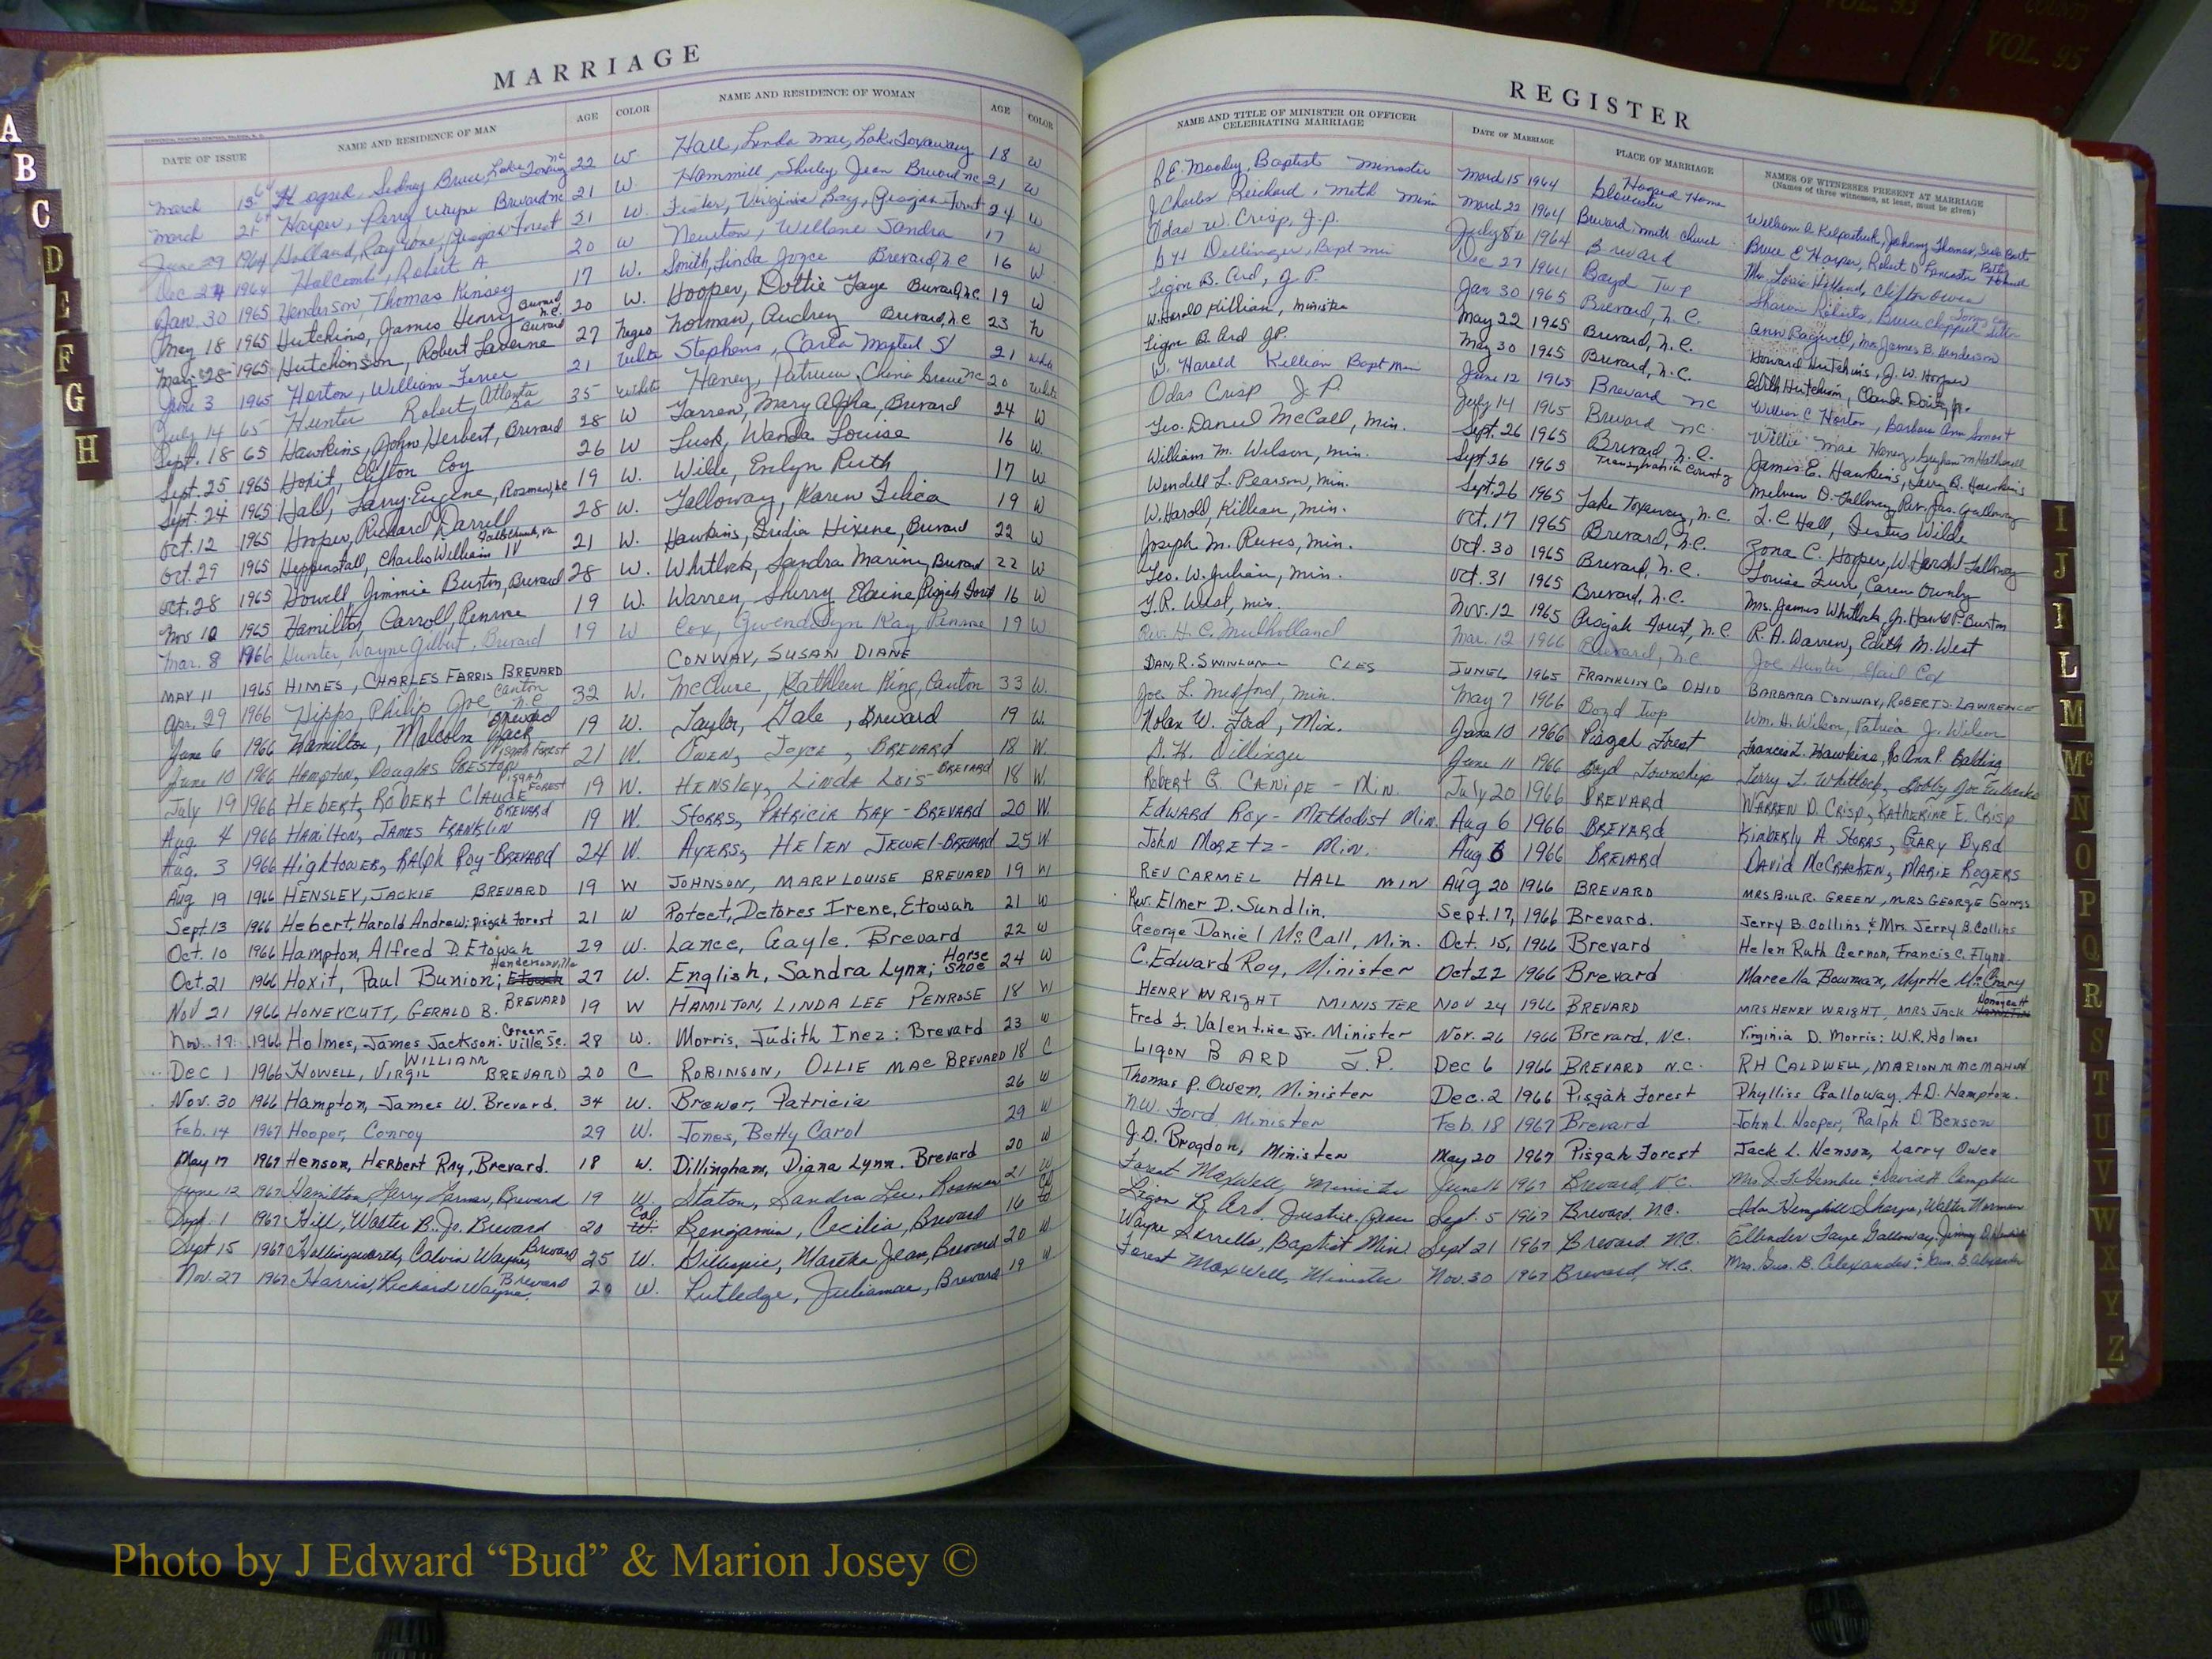 MARRIAGE
DATE OF ISSUE NAME AND RESIDENCE OF MAN AGE COLOR NAME AND RESIDENCE OF WOMAN AGE COLOR
March 13 64 Hogsed, Sidney Bruce, Lake Toxaway NC 22 W. Hall, Linda Mae, Lake Toxaway 18 W
March 21 64 Harper, Perry Wayne Brevard NC 21 W. Hammill, Shirley Jean Brevard NC 21 W
June 29 1964 Holland, Ray Pisgah Forest 21 W. Virginia Pisgah Forest 24 W
Dec 24 1964 Holcomb, Robert A. 20 W Newton, Sandra 17 W
Jan. 30 1965 Henderson Thomas Kinsey 17 W. Smith, Linda Joyce Brevard, NC 16 W
May 18 1965 Hutchins, James Henry Brevard N.C. 20 W. Hooper, Dottie Faye Brevard, N.C 19 W
May 28 1965 Hutchinson, Robert Laverne Brevard 27 Negro Norman, Audrey Brevard, N.C 23 N
June 3 1965 Horton, William 21 White Stephens, Carla 21 White
July 14 65 Hunter Robert, Atlanta Ga 35 White Haney, China Grove NC 20 White
Sept. 18 65 Hawkins, John Herbert, Brevard 28 W Mary Brevard 24 W
Sept. 25 1965 Hoxit, Clifton Coy 26 W Lusk, Wanda Louise 16 W.
Sept. 24 1965 Hall, Larry Eugene, Rosman, NC 19 W. Wilde, Evelyn Ruth 17 W
Oct. 12 1965 Hooper, Richard Darrell 28 W. Galloway, Karen 19 W
Oct. 29 1965 Heppenstall, Charles William IV Falls Church, Va 21 W. Hawkins, Brevard 22 W
Oct. 28 1965 Howell, Jimmie Burton, Brevard 28 W. Whitlock, Sandra Brevard 22 W
Nov 12 1965 Hamilton, Carroll, Penrose 19 W. Warren, Sherry Elaine, Pisgah Forest 16 W
Mar. 8 1966 Hunter, Wayne Gilbert. Brevard 19 W Cox, Gwendolyn Kay Penrose 19 W
MAY 11 1965 HIMES, CHARLES FARRIS BREVARD CONWAY, SUSAN DIANE
Apr. 29 1966 Hipps, Philip Joe, Canton N.C 32 W. McClure, Kathleen King, Canton 33 W.
June 6 1966 Hamilton, Malcolm Jack Brevard 19 W. Taylor, Gale, Brevard 19 W.
June 10 1966 Hampton, Douglas Preston Pisgah Forest 21 W. Owen, Joyce, BREVARD 18 W.
July 19 1966 HEBERT, ROBERT CLAUDE Pisgah Forest 19 W. HENSLEY, LINDA LOIS - BREVARD 18 W.
Aug. 4 1966 HAMILTON, JAMES FRANKLIN BREVARD 19 W. STORRS, PATRICIA KAY - BREVARD 20 W.
Aug. 3 1966 Hightower, Ralph Roy - BREVARD 24 W. AYERS, HELEN JEWEL - BREVARD 25 W
Aug 19 1966 HENSLEY, JACKIE BREVARD 19 W JOHNSON, MARY LOUISE BREVARD 19 W
Sept 13 1966 Hebert, Harold Andrew: Pisgah Forest 21 W Poteet, Delores Irene, Etowah 21 W
Oct. 10 1966 Hampton, Alfred D. Etowah 29 W. Lance, Gayle. Brevard 22 W
Oct. 21 1966 Hoxit, Paul Bunion; Etowah Hendersonville 27 W. English, Sandra Lynn; Horse Shoe 24 W
Nov 21 1966 HONEYCUTT, GERALD B. BREVARD 19 W HAMILTON, LINDA LEE PENROSE 18 W
Nov. 17 1966 Holmes, James Jackson: Greenville, SC. 28 W. Morris, Judith Inez: Brevard 23 W
Dec 1 1966 HOWELL, VIRGIL WILLIAM BREVARD 20 C ROBINSON, OLLIE MAE BREVARD 18 C
Nov. 30 1966 Hampton, James W. Brevard. 34 W. Brewer, Patricia 26 W
Feb. 14 1967 Hooper, Conroy 29 W. Jones, Betty Carol 29 W
May 17 1967 Henson, Herbert Ray, Brevard. 18 W. Dillingham, Diana Lynn. Brevard 20 W
June 12 1967 Hamilton, Larry Brevard 19 W. Staton, Sandra Lee, Rosman 21 W
Sept. 1 1967 Hill, Walter B. Jr. Brevard 20 W. Col Benjamin, Cecilia, Brevard 16 Col
Sept 15 1967 Hollingsworth, Calvin Wayne, Brevard 25 W. Gillespie, Martha Jean, Brevard 20 W
Nov. 27 1967 Harris, Richard Wayne, Brevard 20 W. Rutledge, Juliamae, Brevard 19 W
REGISTER
NAME AND TITLE OF MINISTER OR OFFICER CELEBRATING MARRIAGE DATE OF MARRIAGE PLACE OF MARRIAGE NAMES OF WITNESSES PRESENT AT MARRIAGE
(Names of three witnesses, at least, must be given)
R.E. Moody, Baptist Minister March 15 1964 Hogsed Home Gloucester William A Kilpatrick, Johnny Thomas,
J. Charles Reichard, Meth Min March 22 1964 Brevard Meth Church Bruce E Harper, Robert D Lancaster
Odas W. Crisp, J.P. July 8 1964 Brevard Mrs. Holland, Clifton Owen
Dellinger, Bapt Min Dec 27 1964 Boyd Twp Sharon Roberts, Bruce
Ligon B. Ard, J.P. Jan 30 1965 Brevard, N.C. Ann Bagwell, Mrs James B. Henderson
W. Harold Killian, Minister May 22 1965 Brevard, N.C. Howard Hutchins, J.W. Hooper
Ligon B. Ard J.P. May 30 1965 Brevard, N.C. Edith Hutchison, Claude
W. Harold Killian Bapt Min June 12 1965 Brevard NC William C Horton, Barbara Ann Smart
Odas Crisp J.P. July 14 1965 Brevard NC. Willie Mae Haney,
Geo. Daniel McCall, Min. Sept. 26 1965 Brevard, N.C. James E. Hawkins, Larry B. Hawkins
William M. Wilson, Min. Sept 26 1965 Transylvania County Melvin D. Galloway, Rev. Jas. Galloway
Wendell L. Pearson, Min. Sept. 26 1965 Lake Toxaway, N.C. L.C. Hall, Wilde
W. Harold, Killian, Min. Oct. 17 1965 Brevard, N.C. Zona C. Hooper, W. Harold Galloway
Joseph M. Reeves, Min. Oct. 30 1965 Brevard, N.C. Louise Caren Ownby
Geo. W. Julian, Min. Oct. 31 1965 Brevard, N.C. Mrs. James Whitlock, Jr. Burton
T.R. West, Min. Nov. 12 1965 Pisgah Forest, N.C. R.A. Warren, Edith M. West
Rev. H.C. Mulholland Mar. 12 1966 Brevard, N.C Joe Hunter, Gail Cox
DAN. R. CLES JUNE 1965 FRANKLIN Co OHIO BARBARA CONWAY, ROBERT S. LAWRENCE
Joe L. Medford, Min. May 7 1966 Boyd Twp Wm. H. Wilson, Patricia J. Wilson
Nolan W. Ford, Min. June 10 1966 Pisgah Forest Frances L. Hawkins, Jo Ann P. Balding
D.H. Dillinger June 11 1966 Boyd Township Terry L. Whitlock, Bobby Joe
Robert G. Canipe - Min. July 20 1966 BREVARD WARREN D. CRISP, KATHERINE E. CRISP
EDWARD ROY - Methodist Min. Aug 6 1966 BREVARD Kimberly A. STORRS, GARY BYRD
John Moretz - Min. Aug 6 1966 BREVARD DAVID McCRACKEN, MARIE ROGERS
REV CARMEL HALL MIN AUG 20 1966 BREVARD MRS BILL R. GREEN, MRS GEORGE
Rev. Elmer D. Sundlin. Sept. 17, 1966 Brevard. Jerry B. Collins & Mrs. Jerry B. Collins
George Daniel McCall, Min. Oct. 15, 1966 Brevard Helen Ruth Gernon, Francis C. Flynn
C. Edward Roy, Minister Oct 22 1966 Brevard Marcella Bowman, Myrtle McCrary
HENRY WRIGHT MINISTER NOV 24 1966 BREVARD MRS HENRY WRIGHT, MRS JACK Honeycutt
Fred F. Valentine Jr. Minister Nov. 26 1966 Brevard, NC. Virginia D. Morris: W.R. Holmes
LIGON B ARD J.P. Dec 6 1966 BREVARD N.C. RH CALDWELL, MARION M MCMAHON
Thomas P. Owen, Minister Dec. 2 1966 Pisgah Forest Phylliss Galloway, A.D. Hampton.
N.W. Ford, Minister Feb. 18 1967 Brevard John L. Hooper, Ralph D. Benson
J.D. Brogdon, Minister May 20 1967 Pisgah Forest Jack L. Henson, Larry Owen
Forest Maxwell, Minister June 16 1967 Brevard, N.C. Mrs. & David H. Campbell
Ligon B. Ard, Justice Peace Sept. 5 1967 Brevard N.C. Sharpe, Walter Norman
Wayne Serrells, Baptist Min. Sept 21 1967 Brevard NC. Ellender Faye Galloway, Jimmy
Forest Maxwell, Minister Nov. 30 1967 Brevard, N.C. Mrs. Gus. B. Alexander & Gus. B. Alexander
A
B
C
D
E
F
G
H
I
J
L
M
Mc
N
O
P
Q
R
S
T
U
V
W
X
Y
Z
VOL. 93
COUNTY
VOL. 95
Photo by J Edward “Bud” & Marion Josey ©